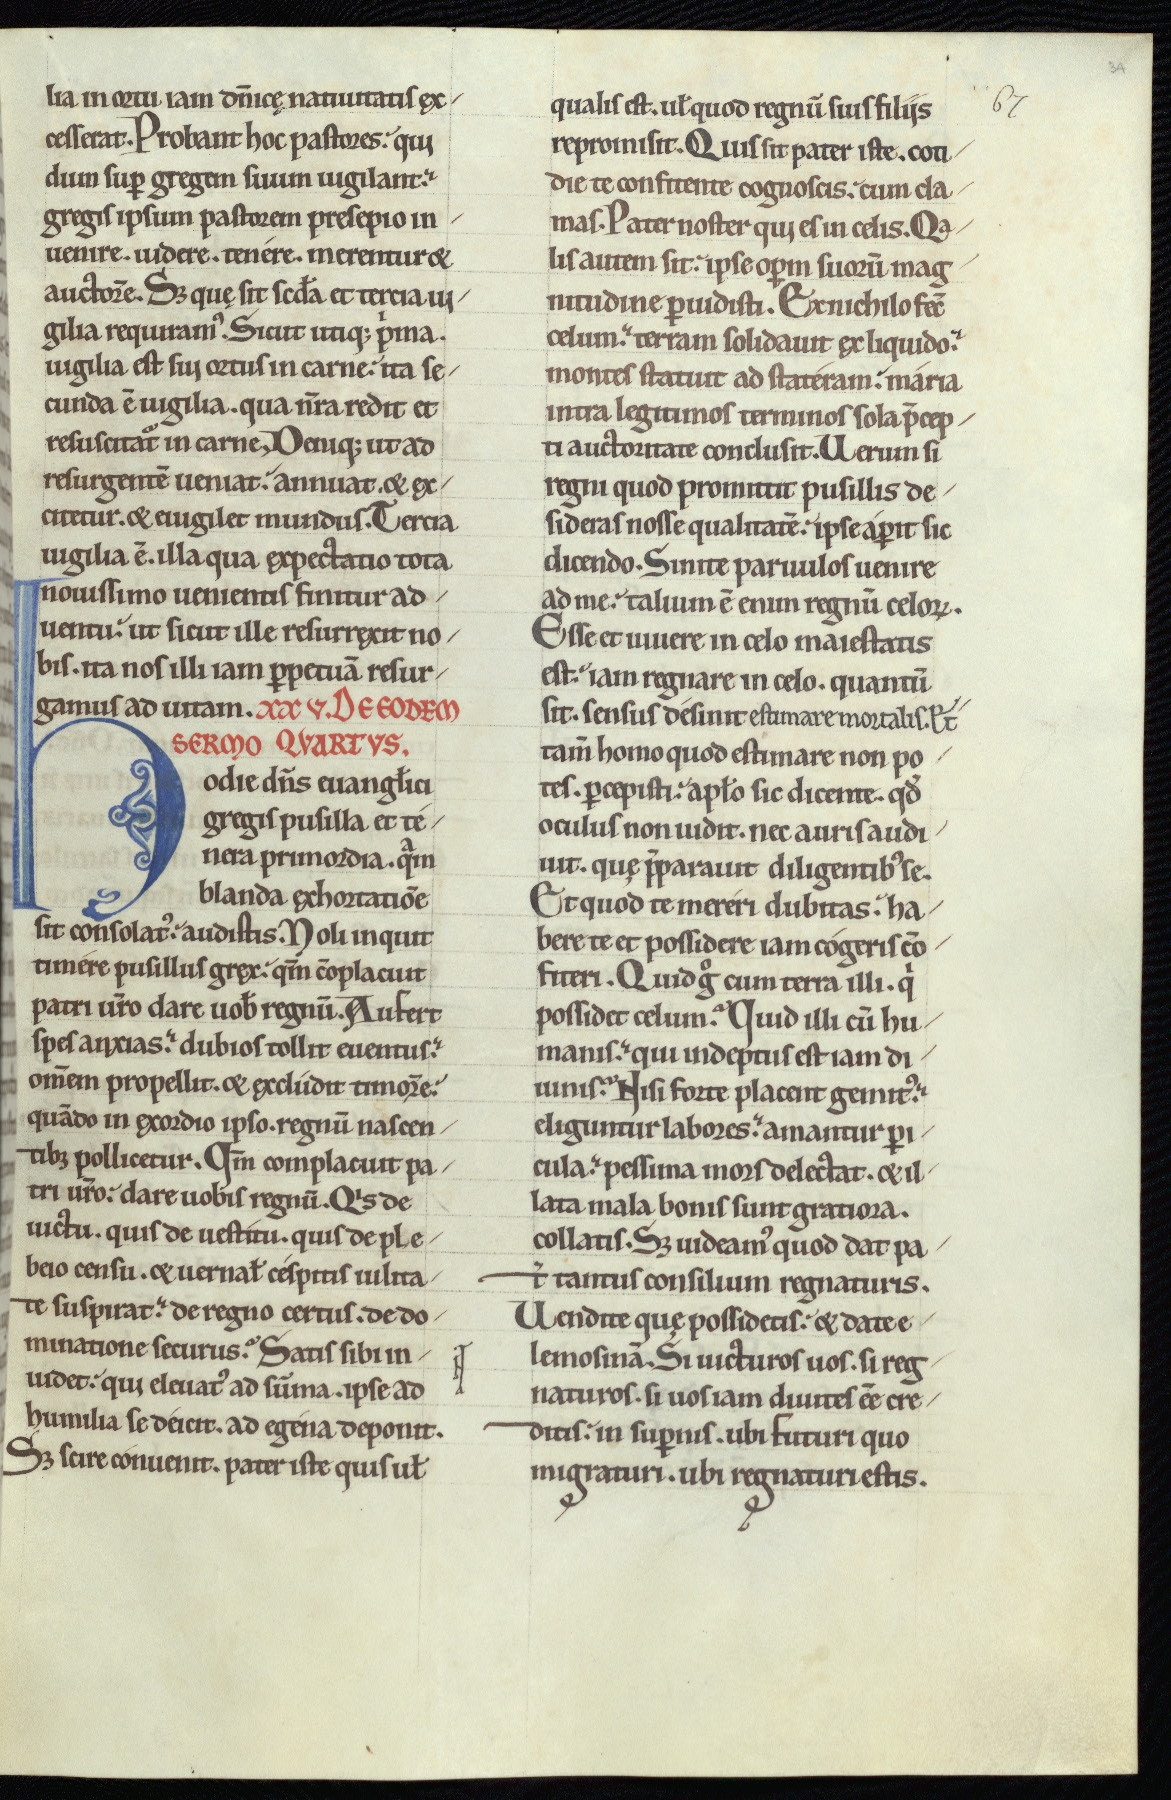 34
67
lia in ortu iam dn̄icę natiuitatis ex
cesserat. Probant hoc pastores: qui
dum sup̄ gregem suum uigilant:
gregis ipsum pastorem presepio in
uenire. uidere. tenére. merentur &
auctorē. Sꝫ quę sit scđa et tercia ui
gilia requiram᷒. Sicut utiqꝫ p̍ma
uigilia est sui ortus in carne: ita se
cunda ē uigilia. qua nr̄a redit et
resuscitat᷒ in carne, Deniqꝫ ut ad
resurgentē ueniat: annuat. & ex
citetur. & euigilet mundus. Tercia
uigilia ē. illa qua expectatio tota
nouissimo uenientis finitur ad
uentu: ut sicut ille resurrexit no
bis. ita nos illi iam ꝑpetuā resur
gamus ad uitam. XXV. DE EODEM
SERMO QVARTVS.
Hodie dn̄s euangl̄ici
gregis pusilla et té
nera primordia. qᵃm
blanda exhortatiōe
sit consolat᷒: audistis. Noli inquit
timére pusillus grex: qm̄ cōplacuit
patri ur̄o dare uob̄ regnū. Aufert
spes anxias: dubios tollit euentus:
om̄em propellit. & exclúdit timorē:
quādo in exordio ipso. regnū nascen
tibꝫ pollicetur. Qm̄ complacuit pa
tri ur̄o: dare uobis regnū. Qis de
uictu. quis de uestitu. quis de ple
beio censu. & uernal̄ céspitis uilita
te suspirat: de regno certus. de do
minatione securus? Satis sibi in
uidet: qui eleuat᷒ ad sūma. ipse ad
humilia se déicit. ad egéna deponit.
Sꝫ scire conuenit. pater iste quis ul̄
qualis est. ul̄ quod regnū suis filiis
repromisit. Quis sit pater iste. coti
die te confitente cognoscis: cum cla
mas. Pater noster qui es in celis. Qᵃ
lis autem sit: ipse oꝑm suorū mag
nitudine ꝑuidisti. Ex nichilo fec̄
celum: terram solidauit ex liquido:
montes statuit ad statéram: mária
intra legitimos terminos sola p̄cep
ti auctoritate conclusit. Uerum si
regni quod promittit pusillis de
sideras nosse qualitatē: ipse aꝑit sic
dicendo. Sinite paruulos uenire
ad me: talium ē enim regnū celoꝝ.
Esse et uiuere in celo maiestatis
est: iam regnare in celo. quantū
sit. sensus désinit estimare mortalis. Et
tam̄ homo quod estimare non po
tes. ꝑcepisti: apl̄o sic dicente. qđ
oculus non uidit. nec auris audi
uit. quę p̄parauit diligentib᷒ se.
Et quod te meréri dubitas: ha
bere te et possidere iam cógeris cō
fiteri. Quid gͦ cum terra illi. qⁱ
possidet celum? Quid illi cū hu
manis: qui indeptus est iam di
uinis? Nisi forte placent gemit᷒:
eliguntur labores: amantur ꝑi
cula: pessima mors delectat. & il
lata mala bonis sunt gratiora.
collatis. Sꝫ uideam᷒ quod dat pa
t̄ tantus consilium regnaturis.
Uendite quę possidetis: & date e
lemosinā. Si uicturos uos. si reg
naturos. si uos iam diuites ēe cre
ditis: in suꝑnis. ubi futuri quo
migraturi. ubi regnaturi estis.